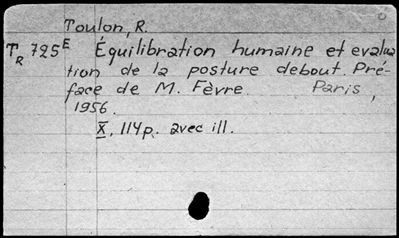 Toulon, R.
TR 725E Équilibration humaine et evalua
tion de la posture debout. Pré-
face de M. Fèvre. Paris,
1956.
X, 114p. avec ill.